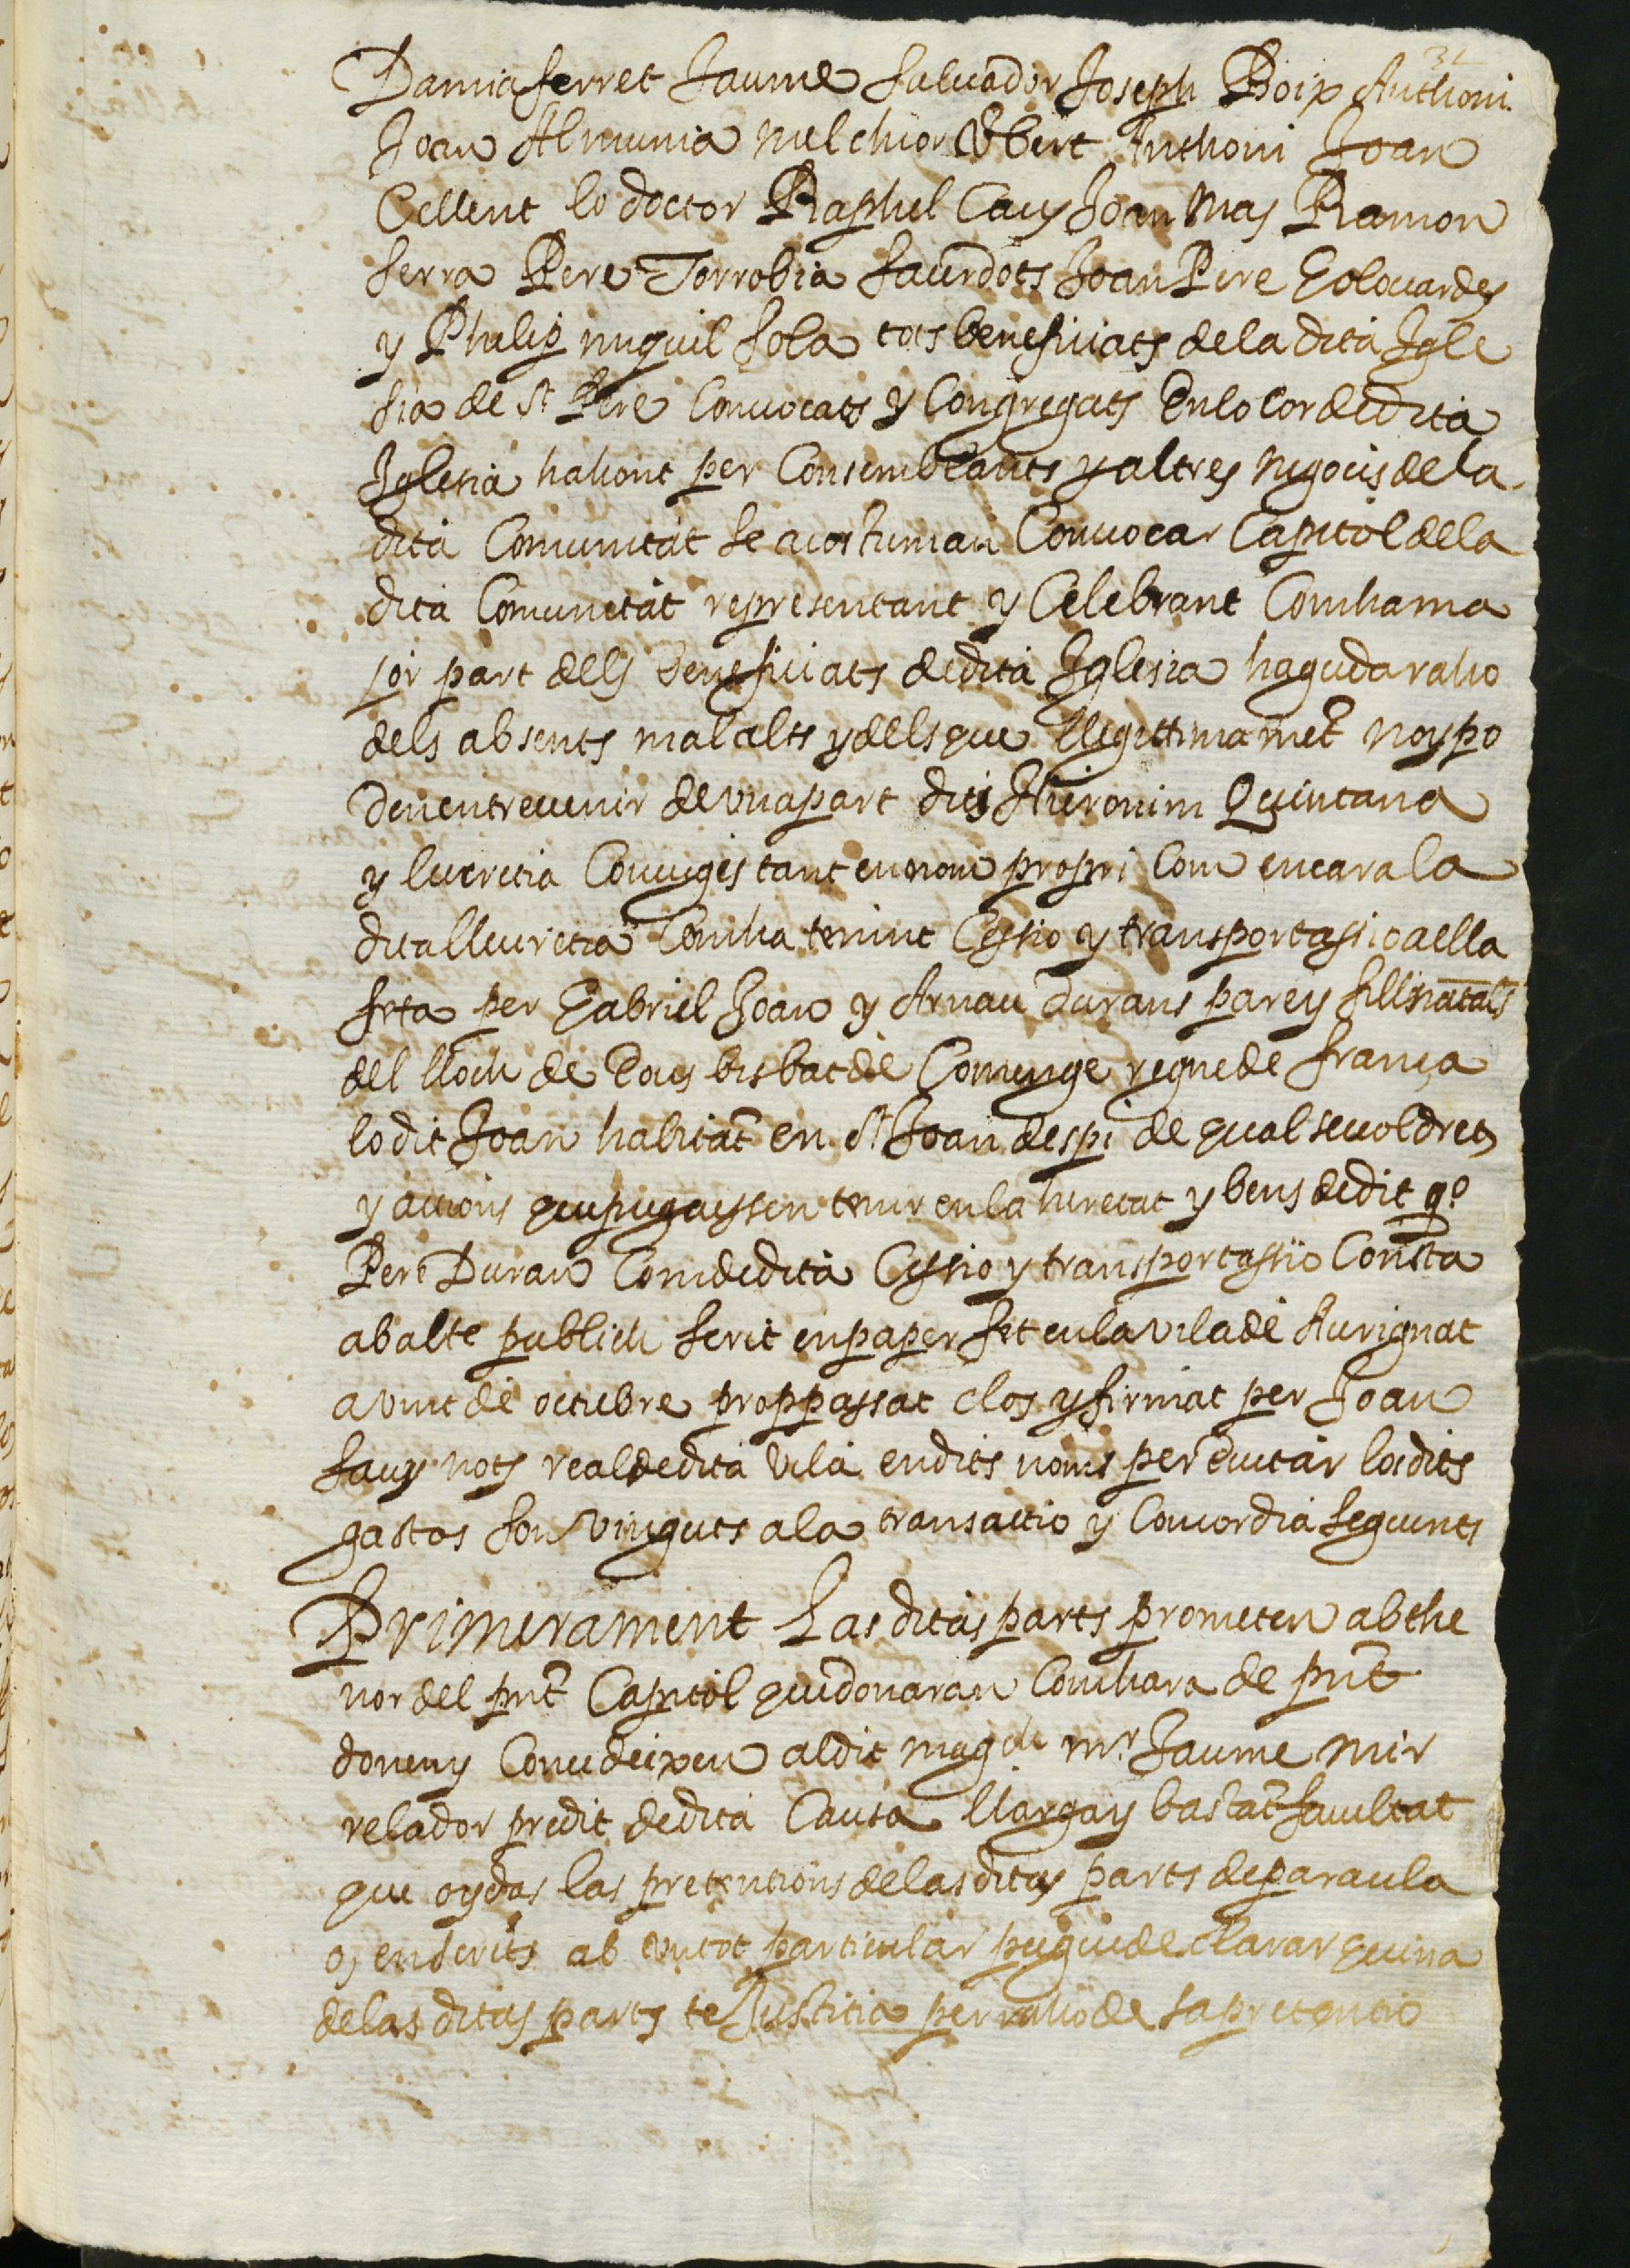 31
Damia ferret Jaume Saluador Joseph Boix Anthoni
Joan Almunia Melchior Ubert Anthoni Joan
Cellent lo doctor Raphel Cays Joan Mas Ramon
serra Pere Torrobia sacerdots Joan Pere Golouardes
y Phelip miquel sola tots beneficiats de la dita Igle
sia de St Pere Conuocats y Congregats En lo cor de dita
Iglesia hahont per Consemblants y altres negocis de la
dita Comunitat se acostuman Conuocar Capitol de la
dita Comunitat representant y Celebrant Com ha ma
jor part dels beneficiats de dita Iglesia haguda raho
dels absents malalts y dels que llegittimamet noy po
den entreuenir de vna part dits Hieronim Quintana
y lucretia Conuges tant en nom propri Com encara la
dita llucretia Com ha tenint Cessio y transportassio a ella
feta per Gabriel Joan y Arnau durans pare y fills natals
del lloch de bisbat de Comenge regne de frança
lo dit Joan habitat en St Joan despi de qualseuol drets
y actions que pugayssen tenir en la heretat y bens de dit qo
Pere Duran Com de dita Cessio y transportassio Consta
ab acte publich scrit en paper fet en la vila de Aurignat
a vint de octubre proppassat clos y firmat per Joan
saux nots real de dita vila en dits noms per euitar los dits
gastos son vinguts a la transactio y Concordia seguents
Primerament Las ditas parts prometen ab the
nor del pnt Capitol quedonaran Com hara de pnt
donen y Concedeixen al dit magch mr Jaume mir
relador predit de dita Causa llarga y bastat facultat
que oydas las pretentions de las ditas parts de paraula
o, en scrits ab vn tot particular pugue declarar quina
de las ditas parts te Justitia per raho de sa pretentio